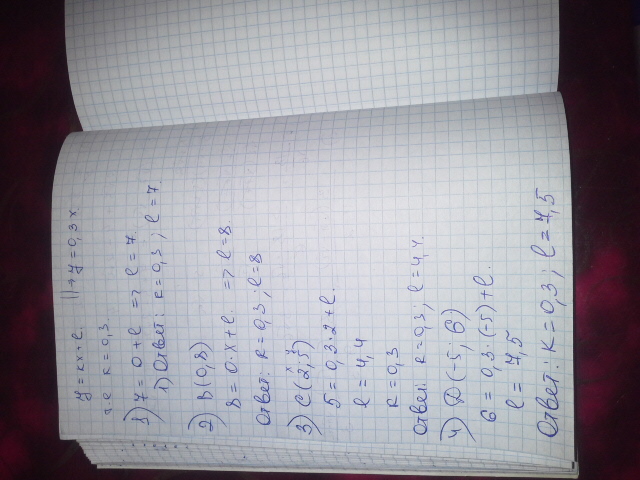 y = kx + l. || → y = 0,3x
т.е k = 0,3.
1) 7 = 0 + l => l = 7.
1) Ответ: k = 0,3 ; l = 7.
2) B(0,8)
8 = 0 · x + l. => l = 8.
Ответ: k = 0,3 ; l = 8
x y
3) C(2; 5)
5 = 0,3 · 2 + l.
l = 4,4
k = 0,3
Ответ: k = 0,3 ; l = 4,4.
4) D(-5; 6)
6 = 0,3 · (-5) + l.
l = 7,5
Ответ: k = 0,3 ; l = 7,5